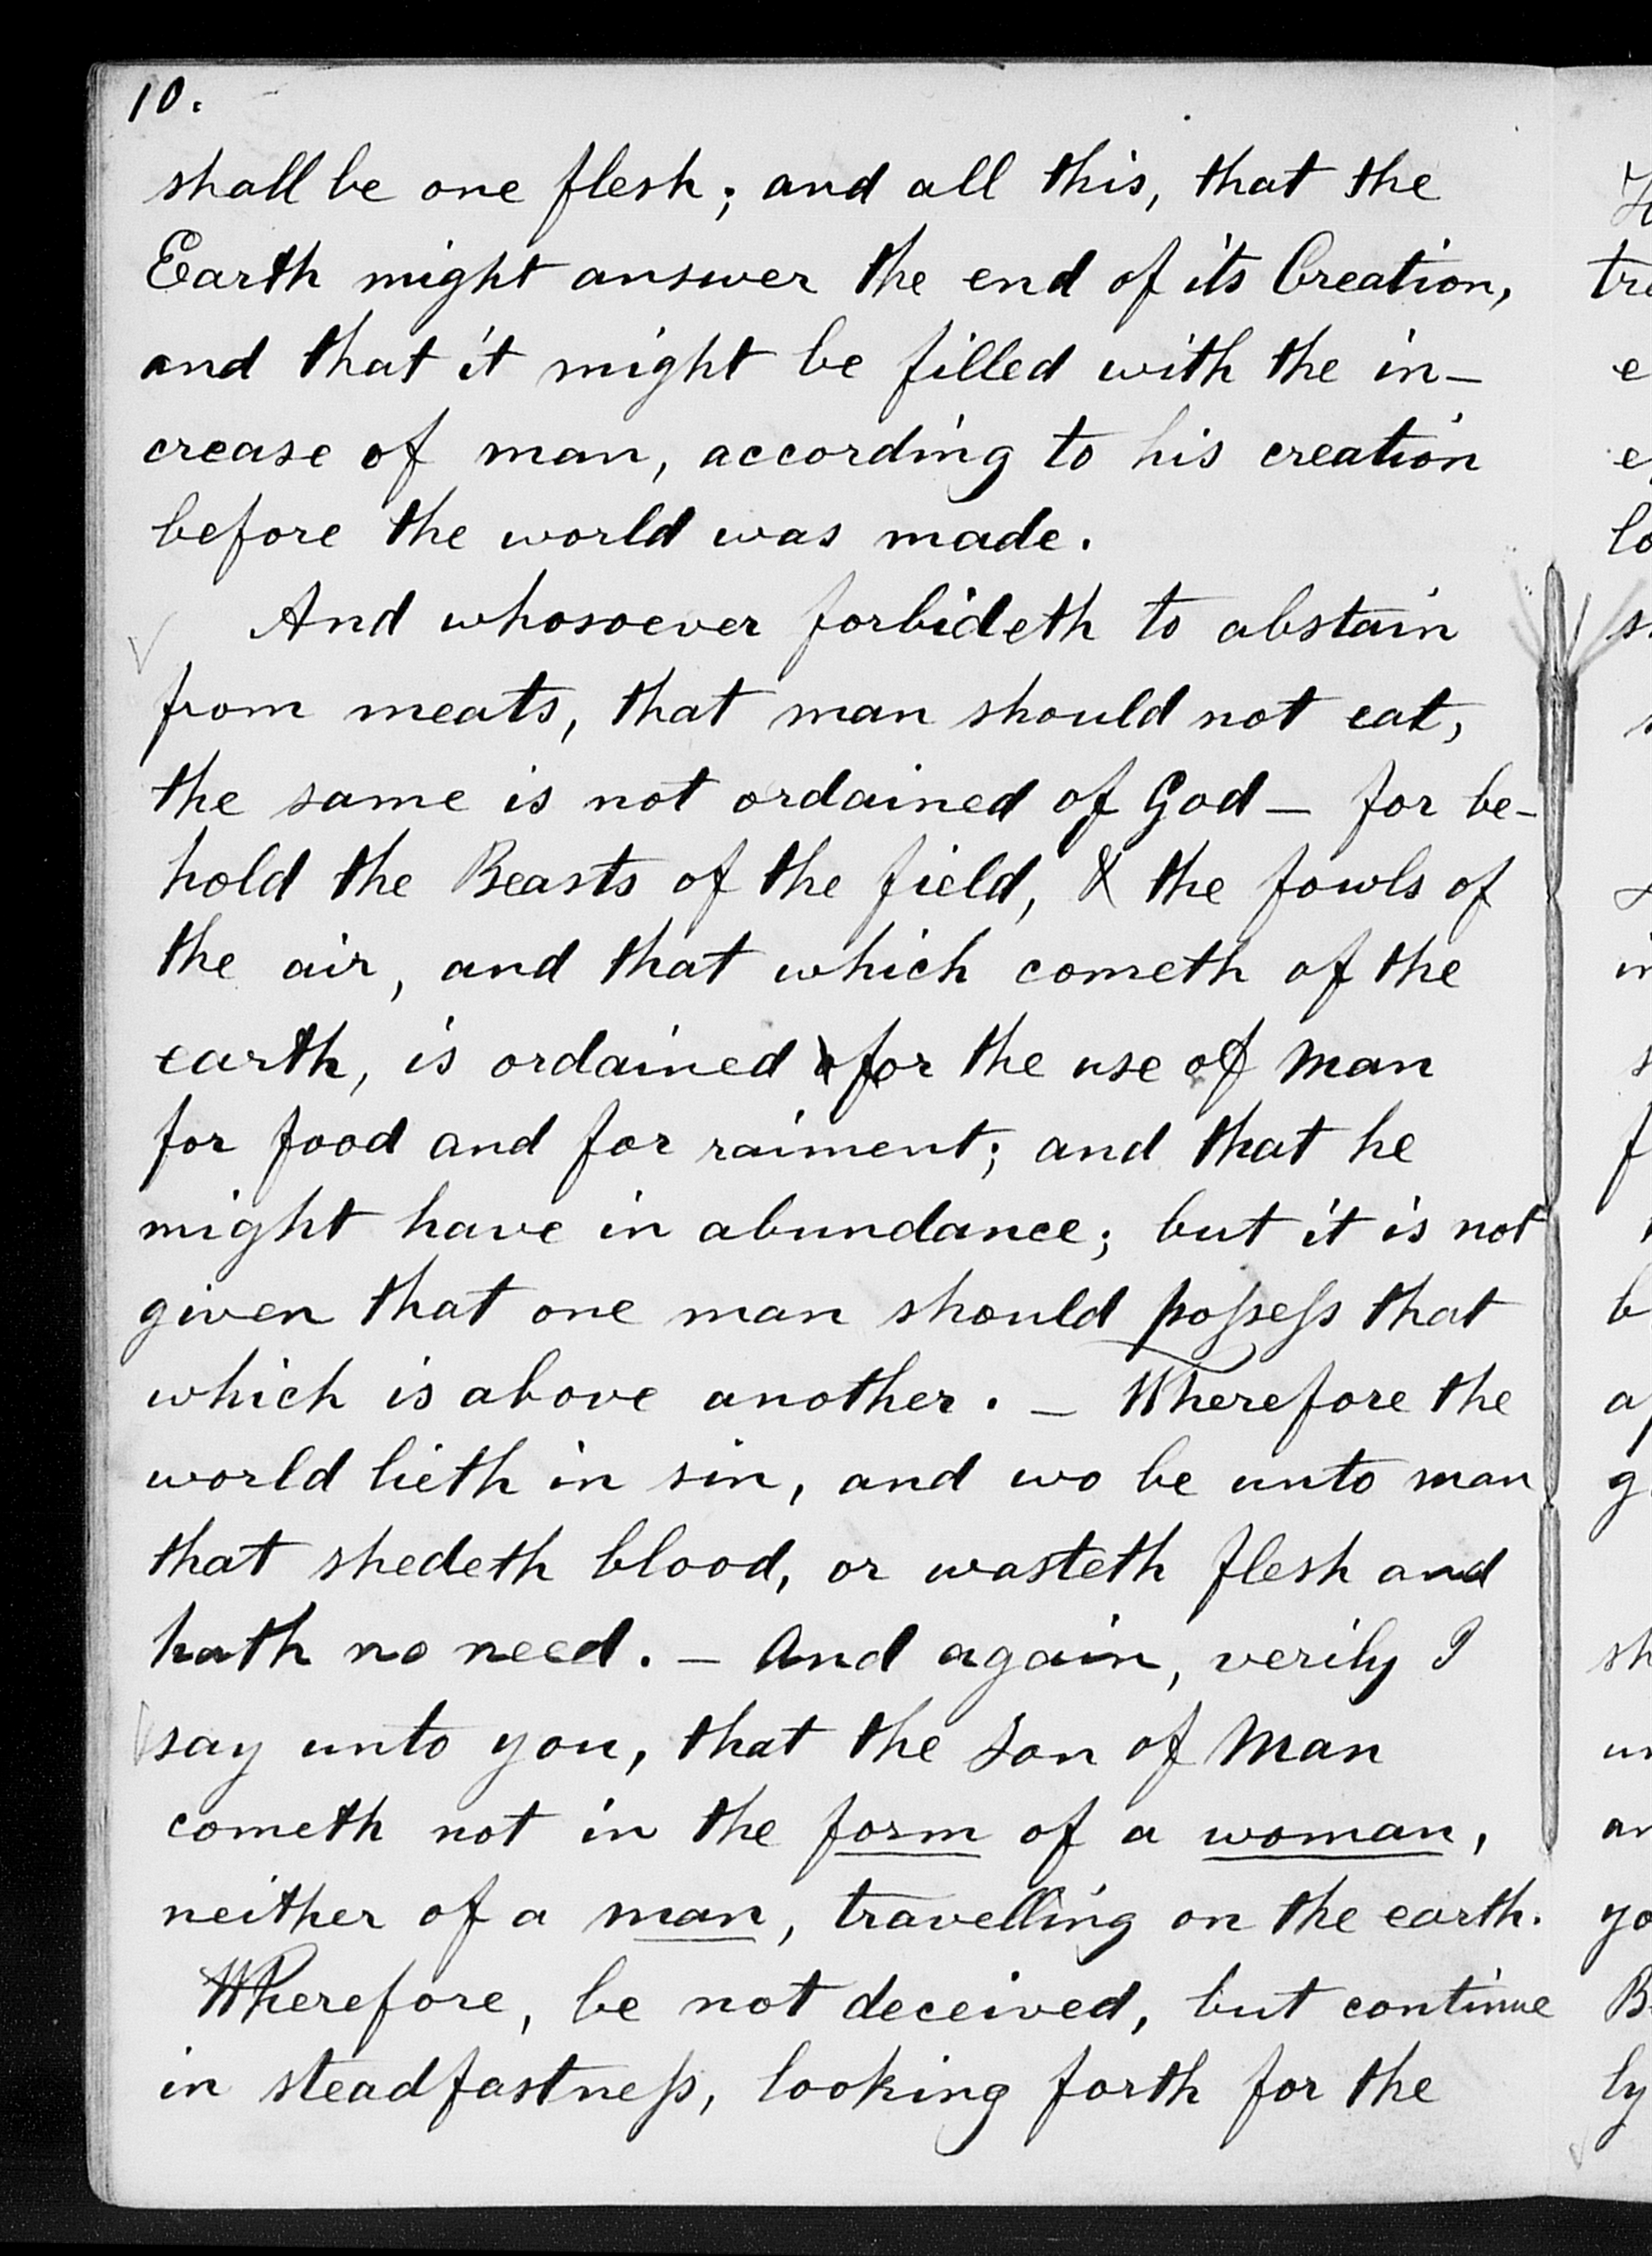 10.
shall be one flesh; and all this, that the
Earth might answer the end of its Creation,
and that it might be filled with the in-
crease of man, according to his creation
before the world was made.
And whosoever forbideth to abstain
from meats, that man should not eat,
the same is not ordained of God— for be-
hold the Beasts of the field, & the fowls of
the air, and that which cometh of the
earth, is ordained for the use of man
for food and for raiment; and that he
might have in abundance; but it is not
given that one man should poſseſs that
which is above another. — Wherefore the
world lieth in sin, and wo be unto man
that shedeth blood, or wasteth flesh and
hath no need. — And again, verily I
say unto you, that the Son of Man
cometh not in the form of a woman,
neither of a man, travelling on the earth.
Wherefore, be not deceived, but continue
in steadfastneſs, looking forth for the